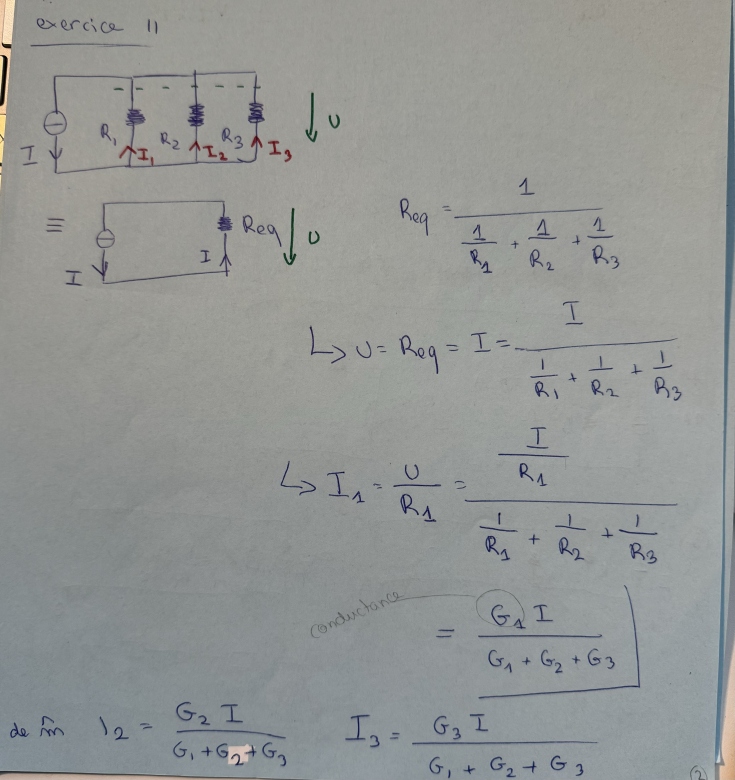 exercice 11
I R₁ I₁ R₂ I₂ R₃ I₃ U
≡ I I Req U
Req = 1 / (1/R₁ + 1/R₂ + 1/R₃)
↳ U = Req = I = I / (1/R₁ + 1/R₂ + 1/R₃)
↳ I₁ = U/R₁ = (I/R₁) / (1/R₁ + 1/R₂ + 1/R₃)
conductance
= G₁ I / (G₁ + G₂ + G₃)
de m̂ I₂ = G₂ I / (G₁ + G₂ + G₃) I₃ = G₃ I / (G₁ + G₂ + G₃)
②